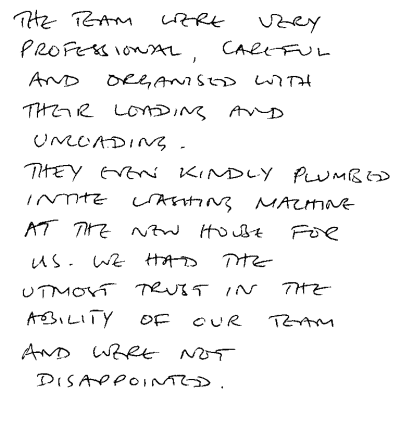 THE TEAM WERE VERY
PROFESSIONAL, CAREFUL
AND ORGANISED WITH
THEIR LOADING AND
UNLOADING.
THEY EVEN KINDLY PLUMBED
IN THE WASHING MACHINE
AT THE NEW HOUSE FOR
US. WE HAD THE
UTMOST TRUST IN THE
ABILITY OF OUR TEAM
AND WERE NOT
DISAPPOINTED.